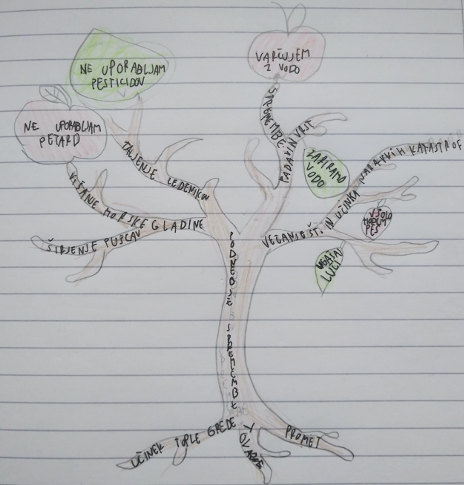 VARČUJEM
Z VODO
NE UPORABLJAM
PESTICIDOV
NE UPORABLJAM
PETARD
TALJENJE LEDENIKOV
VIŠANJE MORSKE GLADINE
ŠIRJENJE PUŠČAV
SPREMEMBE
PADAVIN
ZAPIRAMO
VODO
VEČANJE ŠT. IN UČINKA NARAVNIH KATASTROF
UGAŠAJ
LUČI
PODNEBNE SPREMEMBE
UČINEK TOPLE GREDE
PROMET